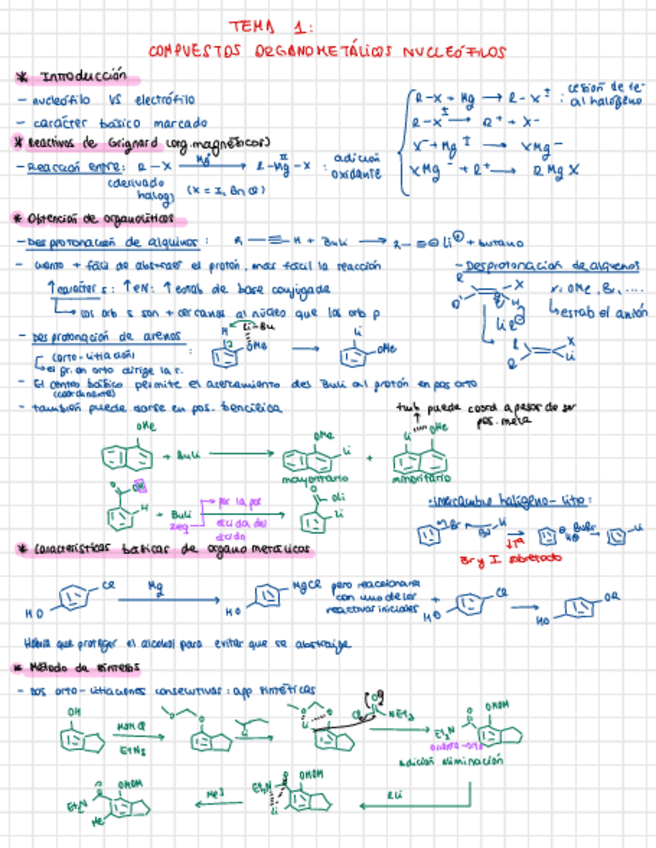 TEMA 1:
COMPUESTOS ORGANOMETÁLICOS NUCLEÓFILOS
* Introducción
- nucleófilo VS electrófilo
- carácter básico marcado
R-X + Mg → R-X
cesión de 1e-
al halógeno
X- + Mg → XMg-
XMg- + R+ → R Mg X
* Reactivos de Grignard (org. magnéticos)
- Reacción entre: R-X Mg → R-Mg-X : adición
oxidante
(derivado
halog)
(X = I, Br, Cl)
* Obtención de organolíticos
- Desprotonación de alquinos: R-≡-H + BuLi → R-≡ Li + butano
- cuanto + fácil de abstraer el protón, más fácil la reacción
↑carácter s: ↑EN: ↑estab de base conjugada
los orb s son + cercanos al núcleo que los orb p
- Desprotonación de alquenos
X: OMe, Br, ....
estab el anión
- Desprotonación de arenos
(orto-litiación)
el gr. en orto dirige la r.
Li-Bu
OMe
Li
OMe
- El centro básico permite el acercamiento del BuLi al protón en pos orto
(coordinante)
- también puede darse en pos. bencílica
tmb puede coord a pesar de ser
pos. meta
OMe
+ BuLi
OMe
Li
mayoritario
+
Li
OMe
minoritario
H
+ BuLi
2eq
por la pos
ácida del
ácido
OLi
Li
· Intercambio halógeno-litio:
Br y I sobretodo
* Características básicas de organometálicos
Cl
HO
Mg
MgCl
HO
pero reaccionaría
con uno de los
reactivos iniciales
+
Cl
HO
HO
Habría que proteger el alcohol para evitar que se abstraiga
* Método de síntesis
- Dos orto-litiaciones consecutivas: app sintéticas
OH
MOMCl
EtN3
Li
NEt2
OMOM
Et2N
adición eliminación
RLi
OMOM
Et2N
Li
MeI
OMOM
Et2N
Me